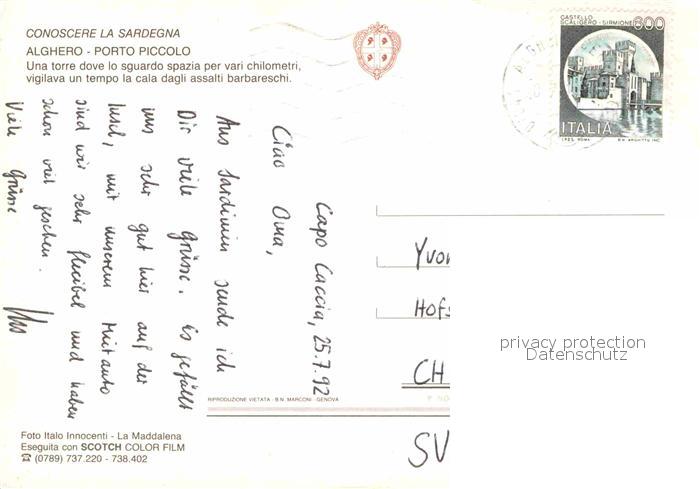 CONOSCERE LA SARDEGNA
ALGHERO - PORTO PICCOLO
Una torre dove lo sguardo spazia per vari chilometri,
vigilava un tempo la cala dagli assalti barbareschi.
CASTELLO
SCALIGERO - SIRMIONE
600
ITALIA
I.P.Z.S. ROMA
Capo Caccia, 25.7.92
Ciao Oma,
Aus Sardinien sende ich
Dir viele Grüsse. Es gefällt
uns sehr gut hier auf der
Insel, mit unserem Mietauto
sind wir sehr flexibel und haben
schon viel gesehen.
Viele Grüsse
Yvon
Hofs
CH
SV
privacy protection
Datenschutz
RIPRODUZIONE VIETATA - B.N. MARCONI - GENOVA
Foto Italo Innocenti - La Maddalena
Eseguita con SCOTCH COLOR FILM
☎ (0789) 737.220 - 738.402